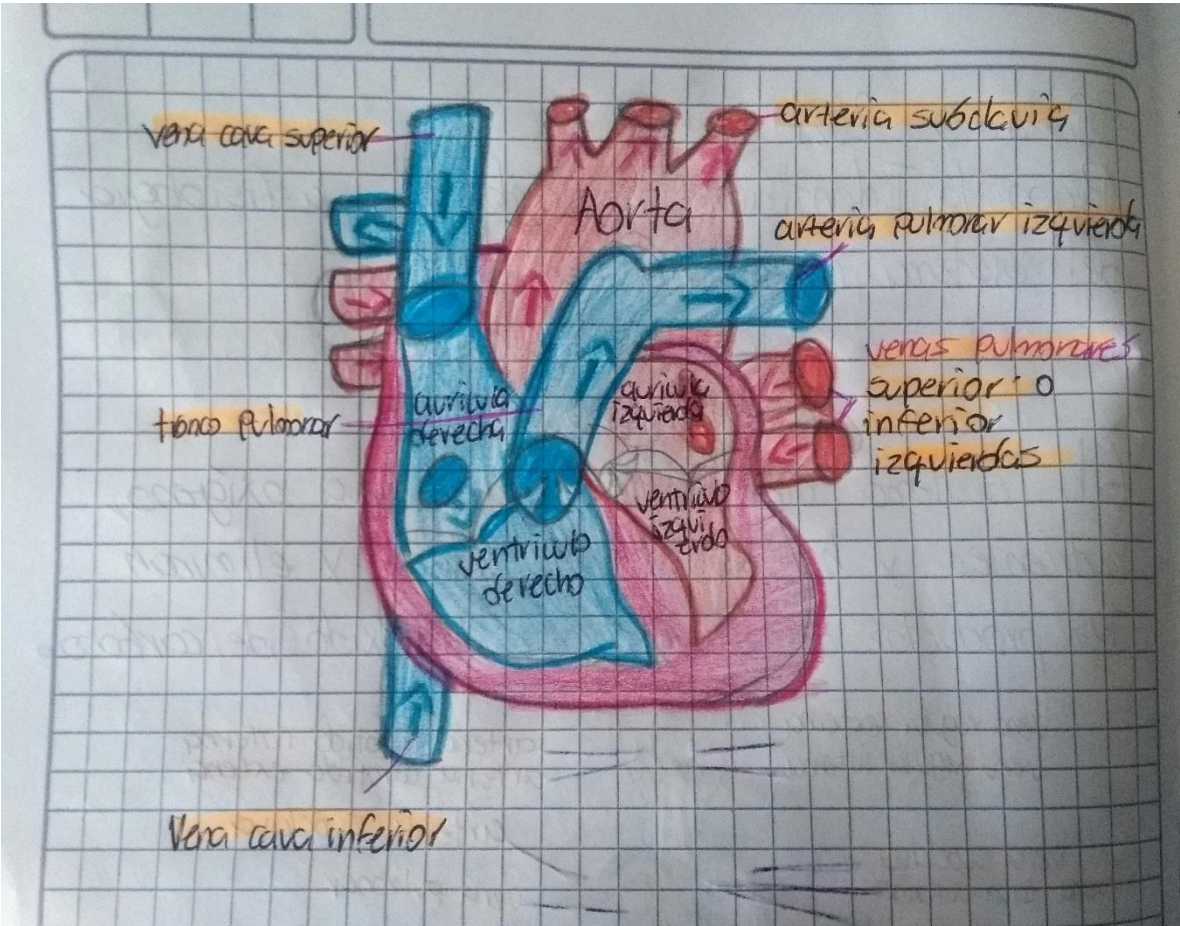 vena cava superior
arteria subclavia
Aorta
arteria pulmonar izquierda
venas pulmonares
superior o
inferior
izquierdas
tronco pulmonar
auricula
derecha
auricula
izquierda
ventriculo
izqui
erdo
ventriculo
derecho
Vena cava inferior